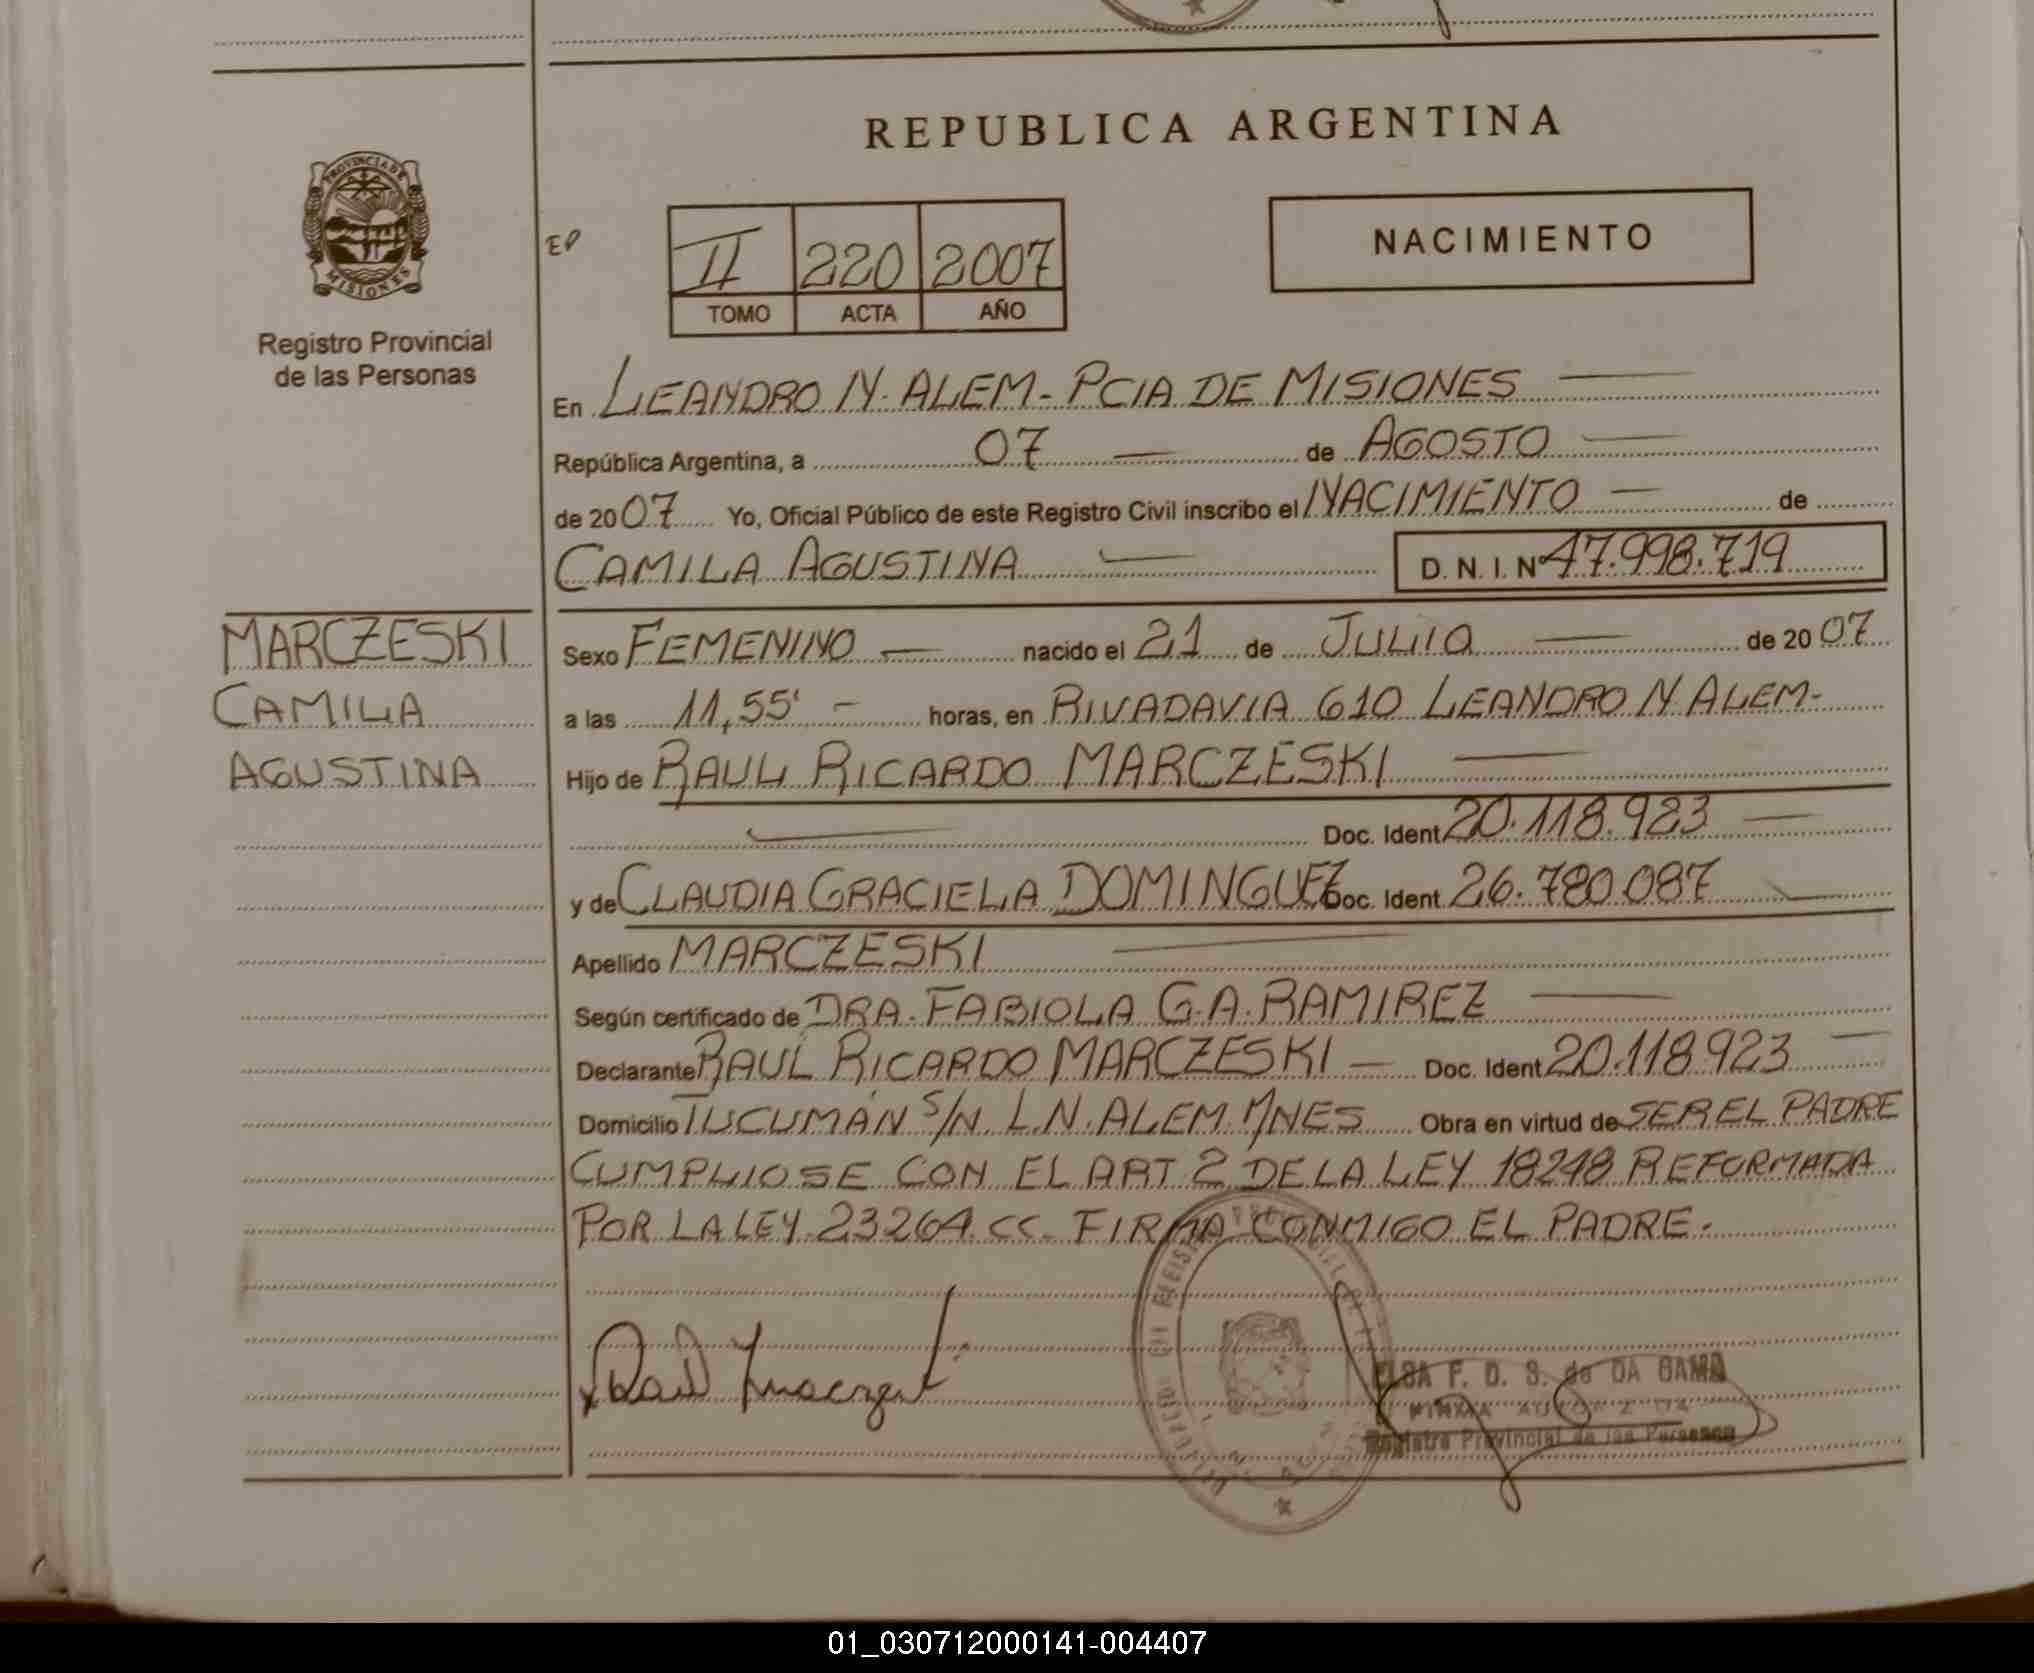 REPUBLICA ARGENTINA
PROVINCIA DE MISIONES
Registro Provincial
de las Personas
EP
II 220 2007
TOMO ACTA AÑO
NACIMIENTO
En LEANDRO N. ALEM - PCIA DE MISIONES
República Argentina, a 07 de AGOSTO
de 2007 Yo, Oficial Público de este Registro Civil inscribo el NACIMIENTO de
CAMILA AGUSTINA D.N.I. Nº 47.998.719
MARCZESKI
CAMILA
AGUSTINA
Sexo FEMENINO nacido el 21 de JULIO de 2007
a las 11,55' horas, en RIVADAVIA 610 LEANDRO N ALEM-
Hijo de RAUL RICARDO MARCZESKI
Doc. Ident 20.118.923
y de CLAUDIA GRACIELA DOMINGUEZ Doc. Ident 26.780.087
Apellido MARCZESKI
Según certificado de DRA. FABIOLA G.A. RAMIREZ
Declarante RAUL RICARDO MARCZESKI Doc. Ident 20.118.923
Domicilio TUCUMÁN S/N. L.N. ALEM. MNES Obra en virtud de SER EL PADRE
CUMPLIOSE CON EL ART 2 DE LA LEY 18248 REFORMADA
POR LA LEY 23264. CC. FIRMA CONMIGO EL PADRE.
ELSA F. D. S. de DA GAMA
FIRMA AUTORIZADA
Registro Provincial de las Personas
01_030712000141-004407